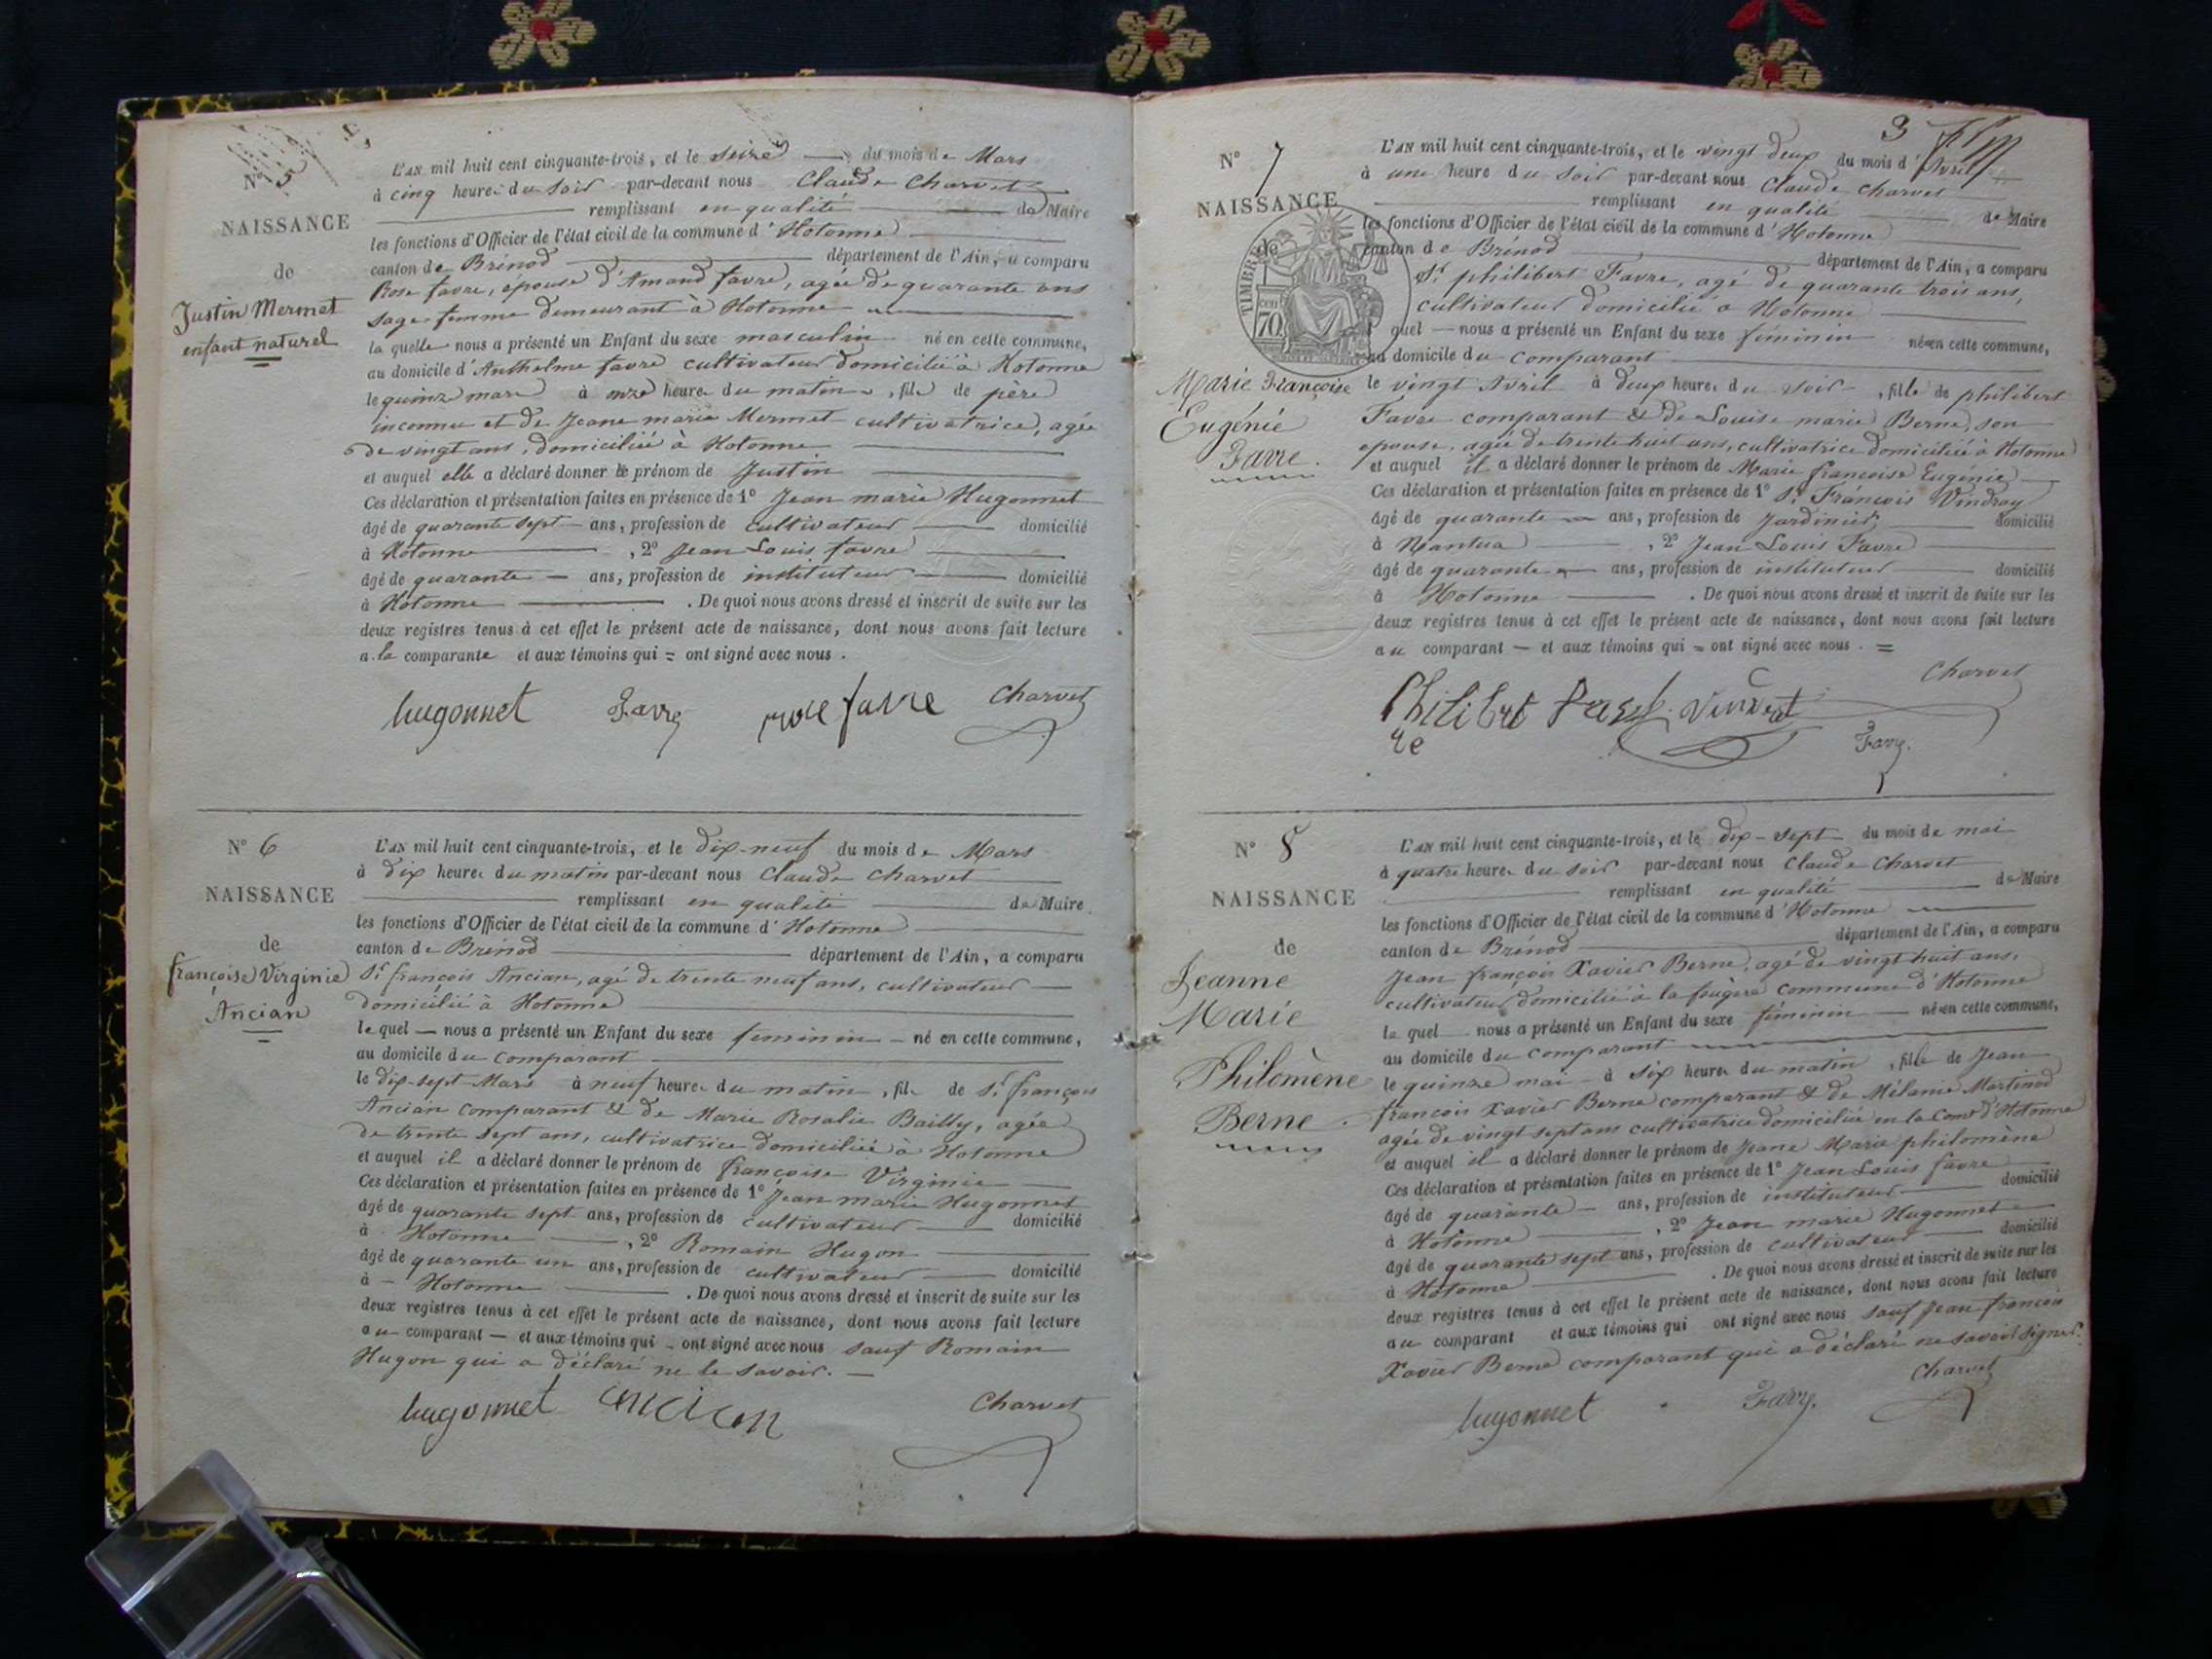 N° 5
NAISSANCE
de
Justin Mermet
enfant naturel
L'AN mil huit cent cinquante-trois, et le seize du mois de Mars
à cinq heures du soir par-devant nous Claude Charvet
remplissant en qualité de Maire
les fonctions d'Officier de l'état civil de la commune d'Hotonne
canton de Brénod département de l'Ain, a comparu
Rose favre, épouse d'Amand favre, agée de quarante ans
sage-femme demeurant à Hotonne
la quelle nous a présenté un Enfant du sexe masculin né en cette commune,
au domicile d'Anthelme favre cultivateur domicilié à Hotonne
le quinze mars à onze heures du matin, fils de père
inconnu et de Jeane marie Mermet cultivatrice, agée
de vingt ans, domiciliée à Hotonne
et auquel elle a déclaré donner le prénom de Justin
Ces déclaration et présentation faites en présence de 1° Jean marie Hugonnet
âgé de quarante sept ans, profession de cultivateur domicilié
à Hotonne, 2° Jean Louis favre
âgé de quarante ans, profession de instituteur domicilié
à Hotonne. De quoi nous avons dressé et inscrit de suite sur les
deux registres tenus à cet effet le présent acte de naissance, dont nous avons fait lecture
a la comparante et aux témoins qui = ont signé avec nous.
hugonnet Favre rose favre Charvet
N° 6
NAISSANCE
de
françoise Virginie
Ancian
L'AN mil huit cent cinquante-trois, et le dix-neuf du mois de Mars
à dix heures du matin par-devant nous Claude Charvet
remplissant en qualité de Maire
les fonctions d'Officier de l'état civil de la commune d'Hotonne
canton de Brénod département de l'Ain, a comparu
Sr françois Ancian, agé de trente neuf ans, cultivateur
domicilié à Hotonne
le quel — nous a présenté un Enfant du sexe feminin né en cette commune,
au domicile du comparant
le dix-sept Mars à neuf heures du matin, fille de Sr françois
Ancian comparant & de Marie Rosalie Bailly, agée
de trente sept ans, cultivatrice domiciliée à Hotonne
et auquel il a déclaré donner le prénom de françoise Virginie
Ces déclaration et présentation faites en présence de 1° Jean marie Hugonnet
âgé de quarante sept ans, profession de cultivateur domicilié
à Hotonne, 2° Romain Hugon
âgé de quarante un ans, profession de cultivateur domicilié
à Hotonne. De quoi nous avons dressé et inscrit de suite sur les
deux registres tenus à cet effet le présent acte de naissance, dont nous avons fait lecture
au comparant — et aux témoins qui ont signé avec nous sauf Romain
Hugon qui a déclaré ne le savoir.
hugonnet ancian Charvet
3
N° 7
NAISSANCE
de
TIMBRE
70
Marie Françoise
Eugénie
Favre.
L'AN mil huit cent cinquante-trois, et le vingt deux du mois d'Avril
à une heure du soir par-devant nous Claude Charvet
remplissant en qualité de Maire
les fonctions d'Officier de l'état civil de la commune d'Hotonne
canton de Brénod département de l'Ain, a comparu
Sr philibert Favre, agé de quarante trois ans,
cultivateur domicilié à Hotonne
quel — nous a présenté un Enfant du sexe féminin née en cette commune,
au domicile du comparant
le vingt Avril à deux heures du soir, fille de philibert
Favre comparant & de Louise marie Berne, son
epouse, agée de trente huit ans, cultivatrice domiciliée à Hotonne
et auquel il a déclaré donner le prénom de Marie françoise Eugénie
Ces déclaration et présentation faites en présence de 1° Sr François Vindray
âgé de quarante ans, profession de Jardinier domicilié
à Nantua, 2° Jean Louis Favre
âgé de quarante ans, profession de instituteur domicilié
à Hotonne. De quoi nous avons dressé et inscrit de suite sur les
deux registres tenus à cet effet le présent acte de naissance, dont nous avons fait lecture
au comparant — et aux témoins qui = ont signé avec nous. =
Charvet
Philibert
Favre.
N° 8
NAISSANCE
de
Jeanne
Marie
Philomène
Berne.
L'AN mil huit cent cinquante-trois, et le dix-sept du mois de mai
à quatre heures du soir par-devant nous Claude Charvet
remplissant en qualité de Maire
les fonctions d'Officier de l'état civil de la commune d'Hotonne
canton de Brénod département de l'Ain, a comparu
Jean françois Xavier Berne, agé de vingt huit ans,
cultivateur domicilié à la fougère commune d'Hotonne
le quel nous a présenté un Enfant du sexe féminin — née en cette commune,
au domicile du comparant
le quinze mai à six heures du matin, fille de Jean
françois Xavier Berne comparant & de Mélanie Martinod
agée de vingt sept ans cultivatrice domiciliée en la Com d'Hotonne
et auquel il a déclaré donner le prénom de Jeane Marie philomène
Ces déclaration et présentation faites en présence de 1° Jean Louis favre
âgé de quarante — ans, profession de instituteur domicilié
à Hotonne, 2° Jean marie Hugonnet
âgé de quarante sept ans, profession de cultivateur domicilié
à Hotonne. De quoi nous avons dressé et inscrit de suite sur les
deux registres tenus à cet effet le présent acte de naissance, dont nous avons fait lecture
au comparant et aux témoins qui ont signé avec nous sauf Jean françois
Xavier Berne comparant qui a déclaré ne savoir signer.
hugonnet Favre. Charvet